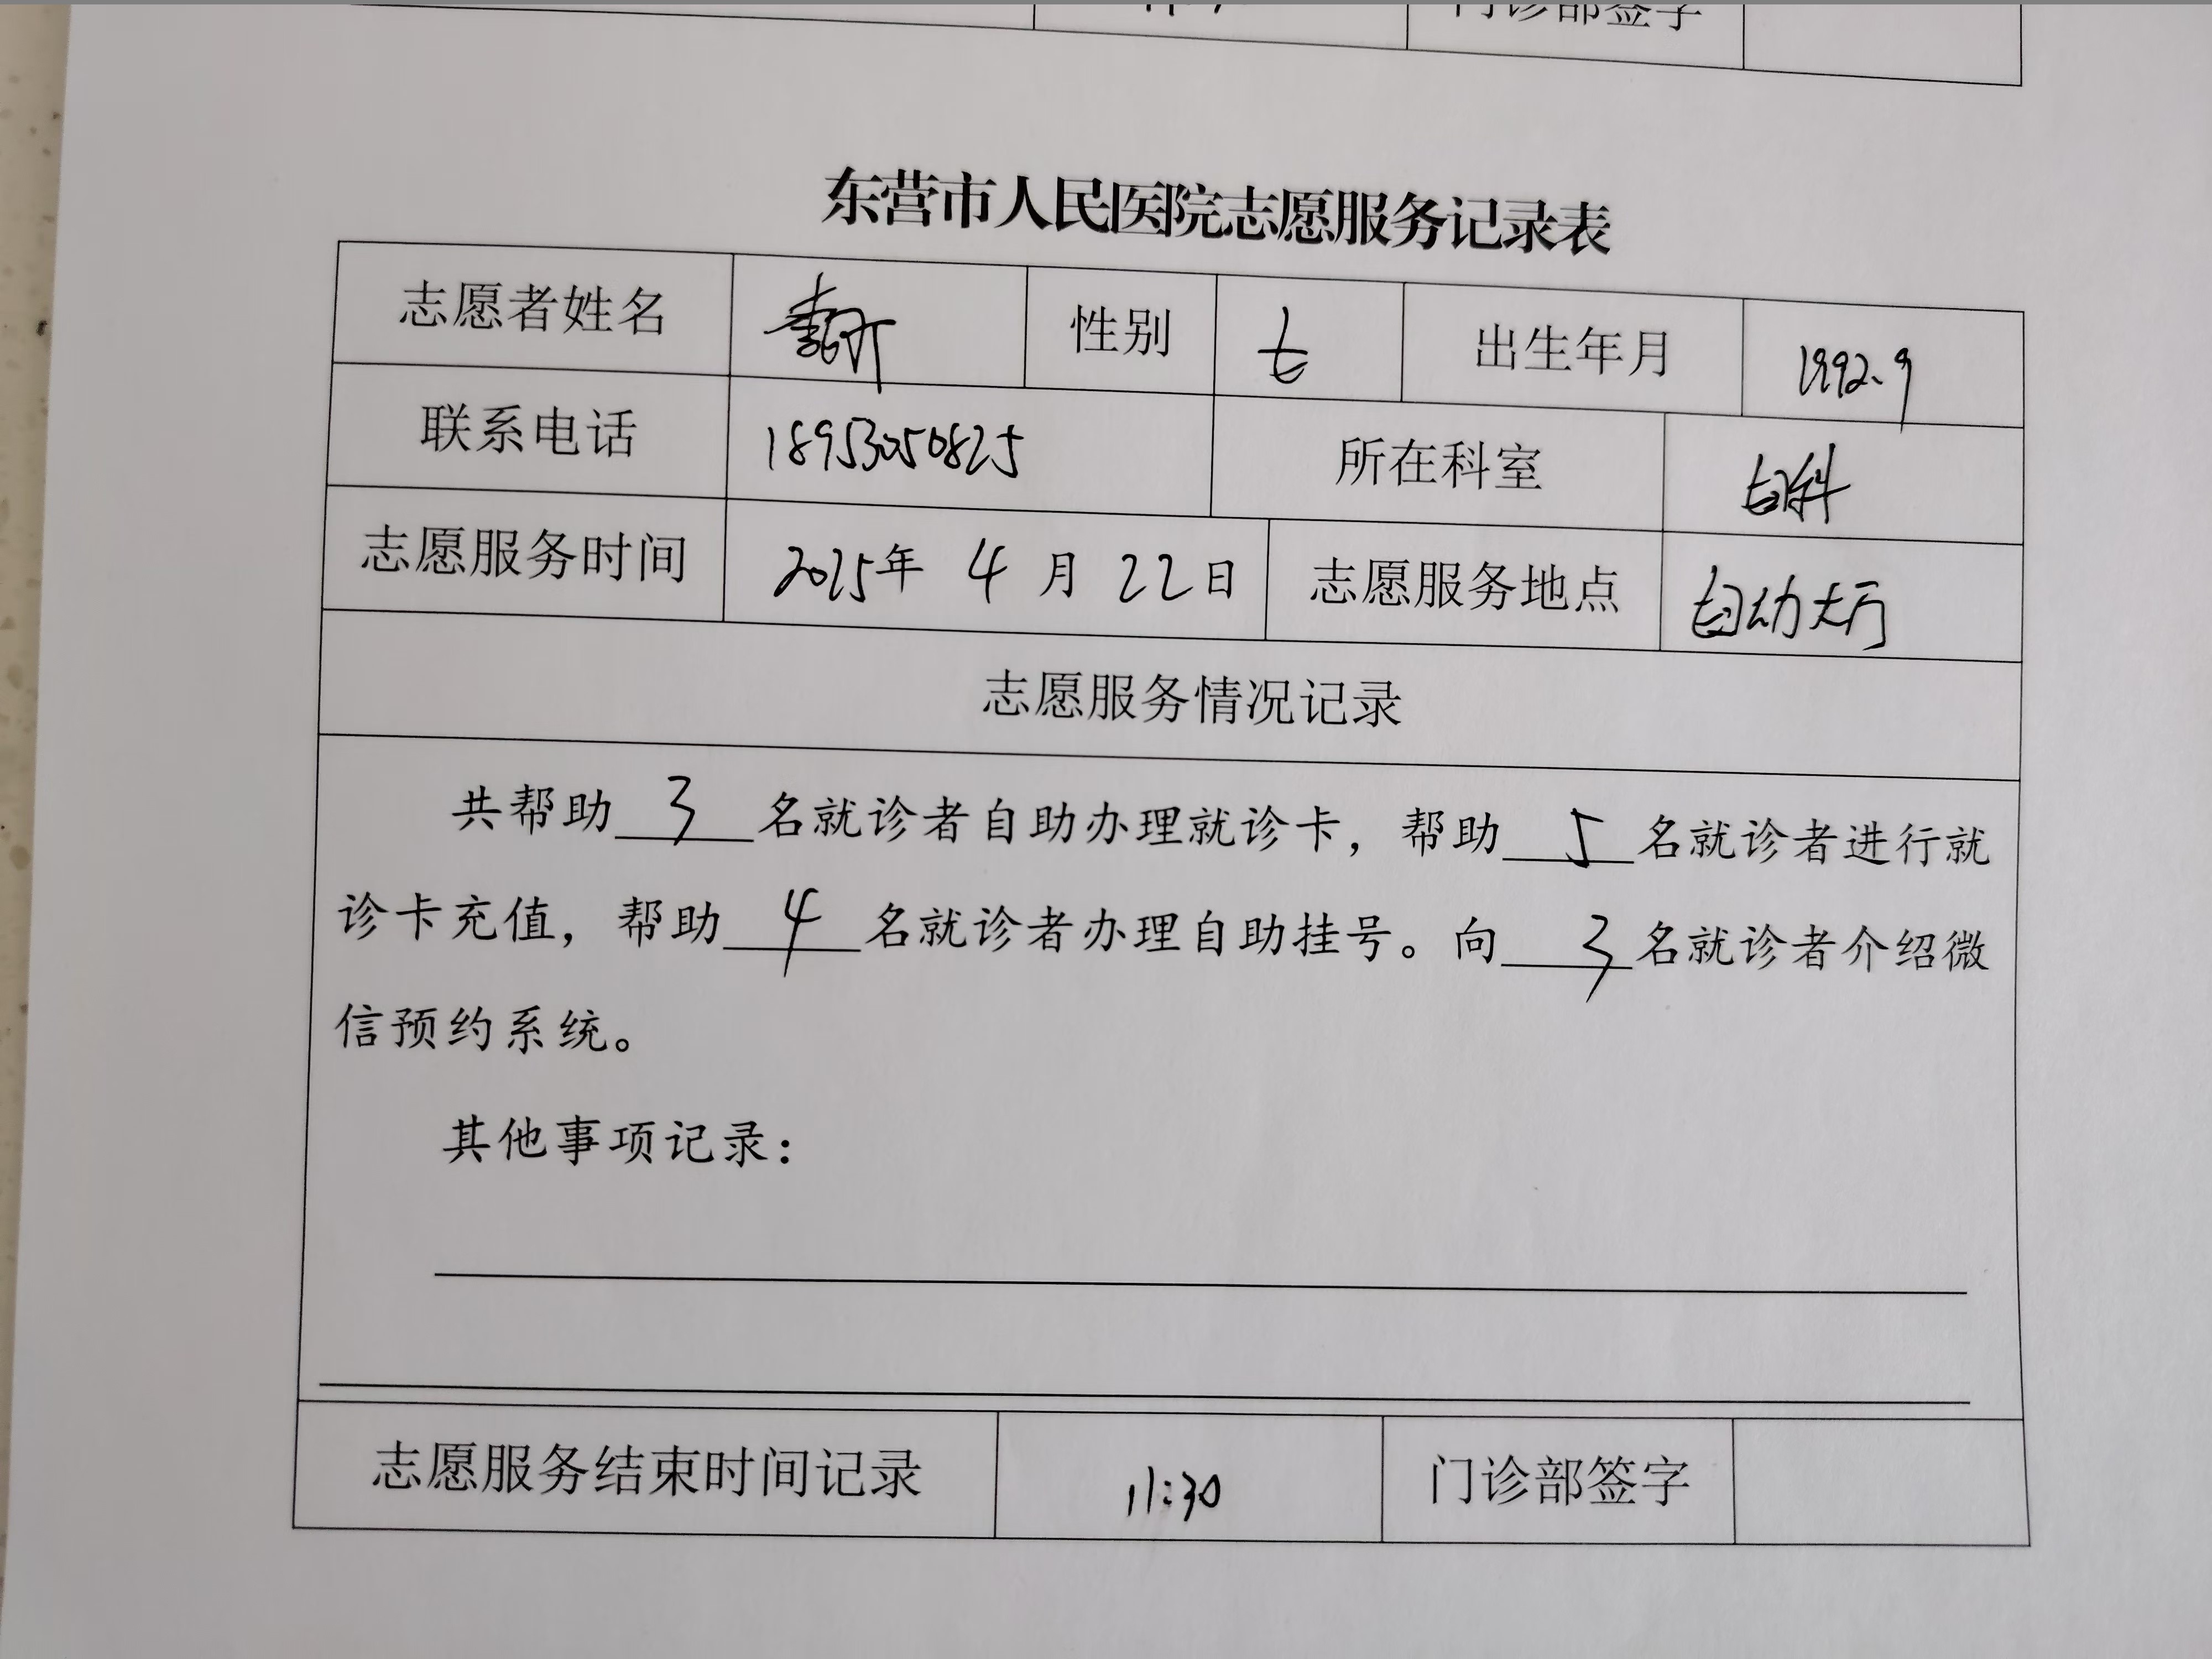 门诊部签字
东营市人民医院志愿服务记录表
志愿者姓名 性别 女 出生年月 1992.9
联系电话 18953050825 所在科室
志愿服务时间 2025年 4 月 22日 志愿服务地点 大厅
志愿服务情况记录
共帮助 3 名就诊者自助办理就诊卡，帮助 5 名就诊者进行就
诊卡充值，帮助 4 名就诊者办理自助挂号。向 3 名就诊者介绍微
信预约系统。
其他事项记录：
志愿服务结束时间记录 11:30 门诊部签字